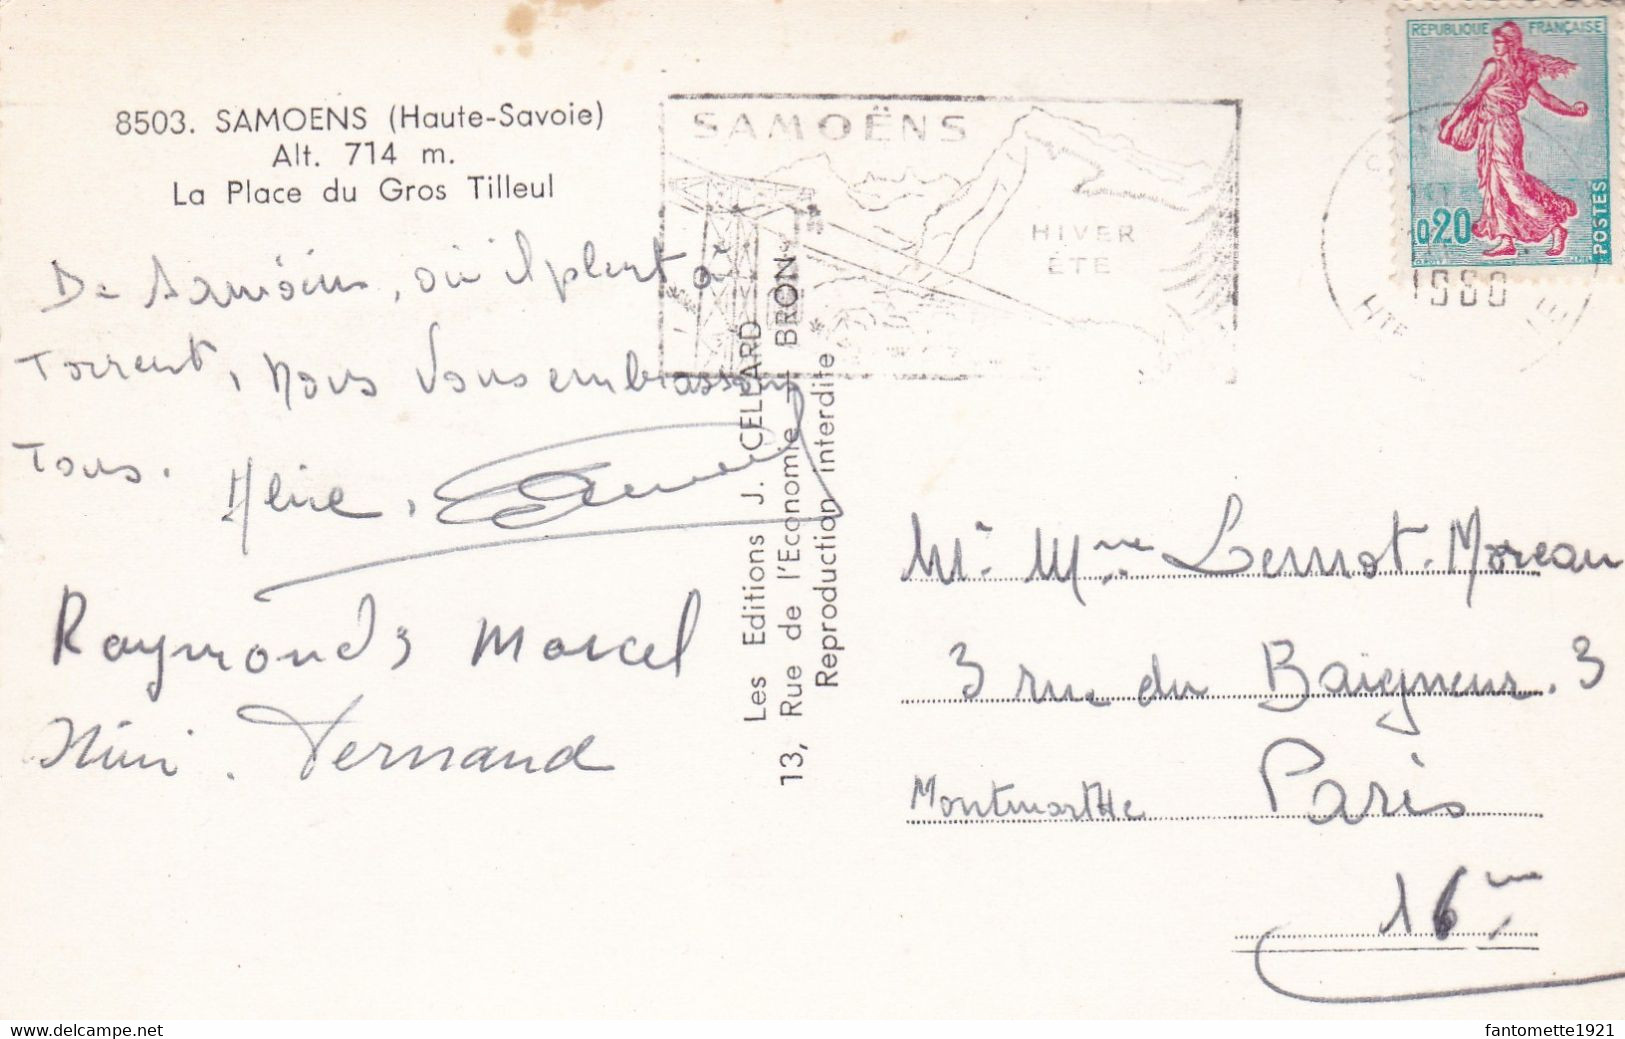 8503. SAMOENS (Haute-Savoie)
Alt. 714 m.
La Place du Gros Tilleul
De Samoëns, où il pleut à
Torrent, nous vous embrassons
Tous.
Raymonds Marcel
Nini. Fernand
Les Editions J. CELLARD
13, Rue de l'Economie — BRON
Reproduction interdite
SAMOËNS
HIVER
ÉTÉ
REPUBLIQUE FRANÇAISE
0,20
POSTES
1960
HTE
Mr. Mme Lernot. Moreau
3 rue du Baigneur. 3
Montmartre Paris
16me
fantomette1921
www.delcampe.net